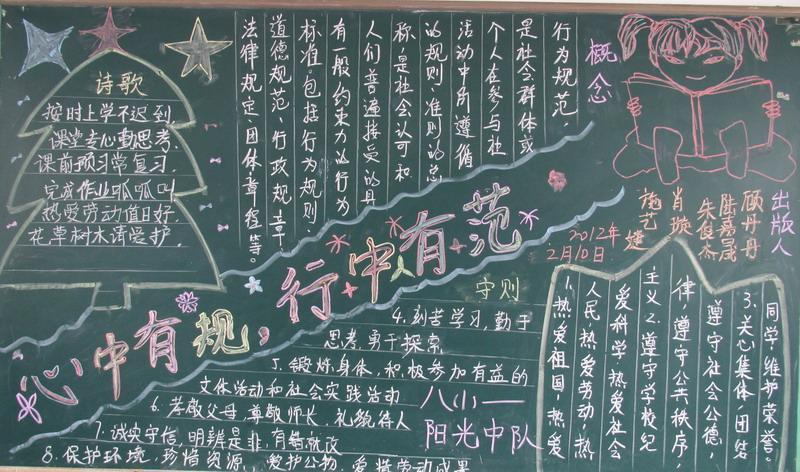 诗歌
按时上学不迟到,
课堂专心勤思考,
课前预习常复习,
完成作业呱呱叫
热爱劳动值日好,
花草树木请爱护,
概念
行为规范,
是社会群体或
个人在参与社
活动中所遵循
的规则、准则的总
称,是社会认可和
人们普遍接受的具
有一般约束力的行为
标准。包括行为规则、
道德规范、行政规章、
法律规定、团体章程等。
心中有规,行中有范
出版人
顾丹丹
陆嘉晟
朱俊杰
肖璇
施艺婕
2012年
2月10日
守则
1.热爱祖国,热爱
人民,热爱劳动,热
爱科学,热爱社会
主义 2.遵守学校纪
律,遵守公共秩序
遵守社会公德,
3.关心集体,团结
同学,维护荣誉。
4.刻苦学习,勤于
思考,勇于探索
5.锻炼身体,积极参加有益的
文体活动和社会实践活动
6.孝敬父母,尊敬师长,礼貌待人
7.诚实守信,明辨是非,有错就改
8.保护环境,珍惜资源,爱护公物,爱惜劳动成果
八(1)一
阳光中队